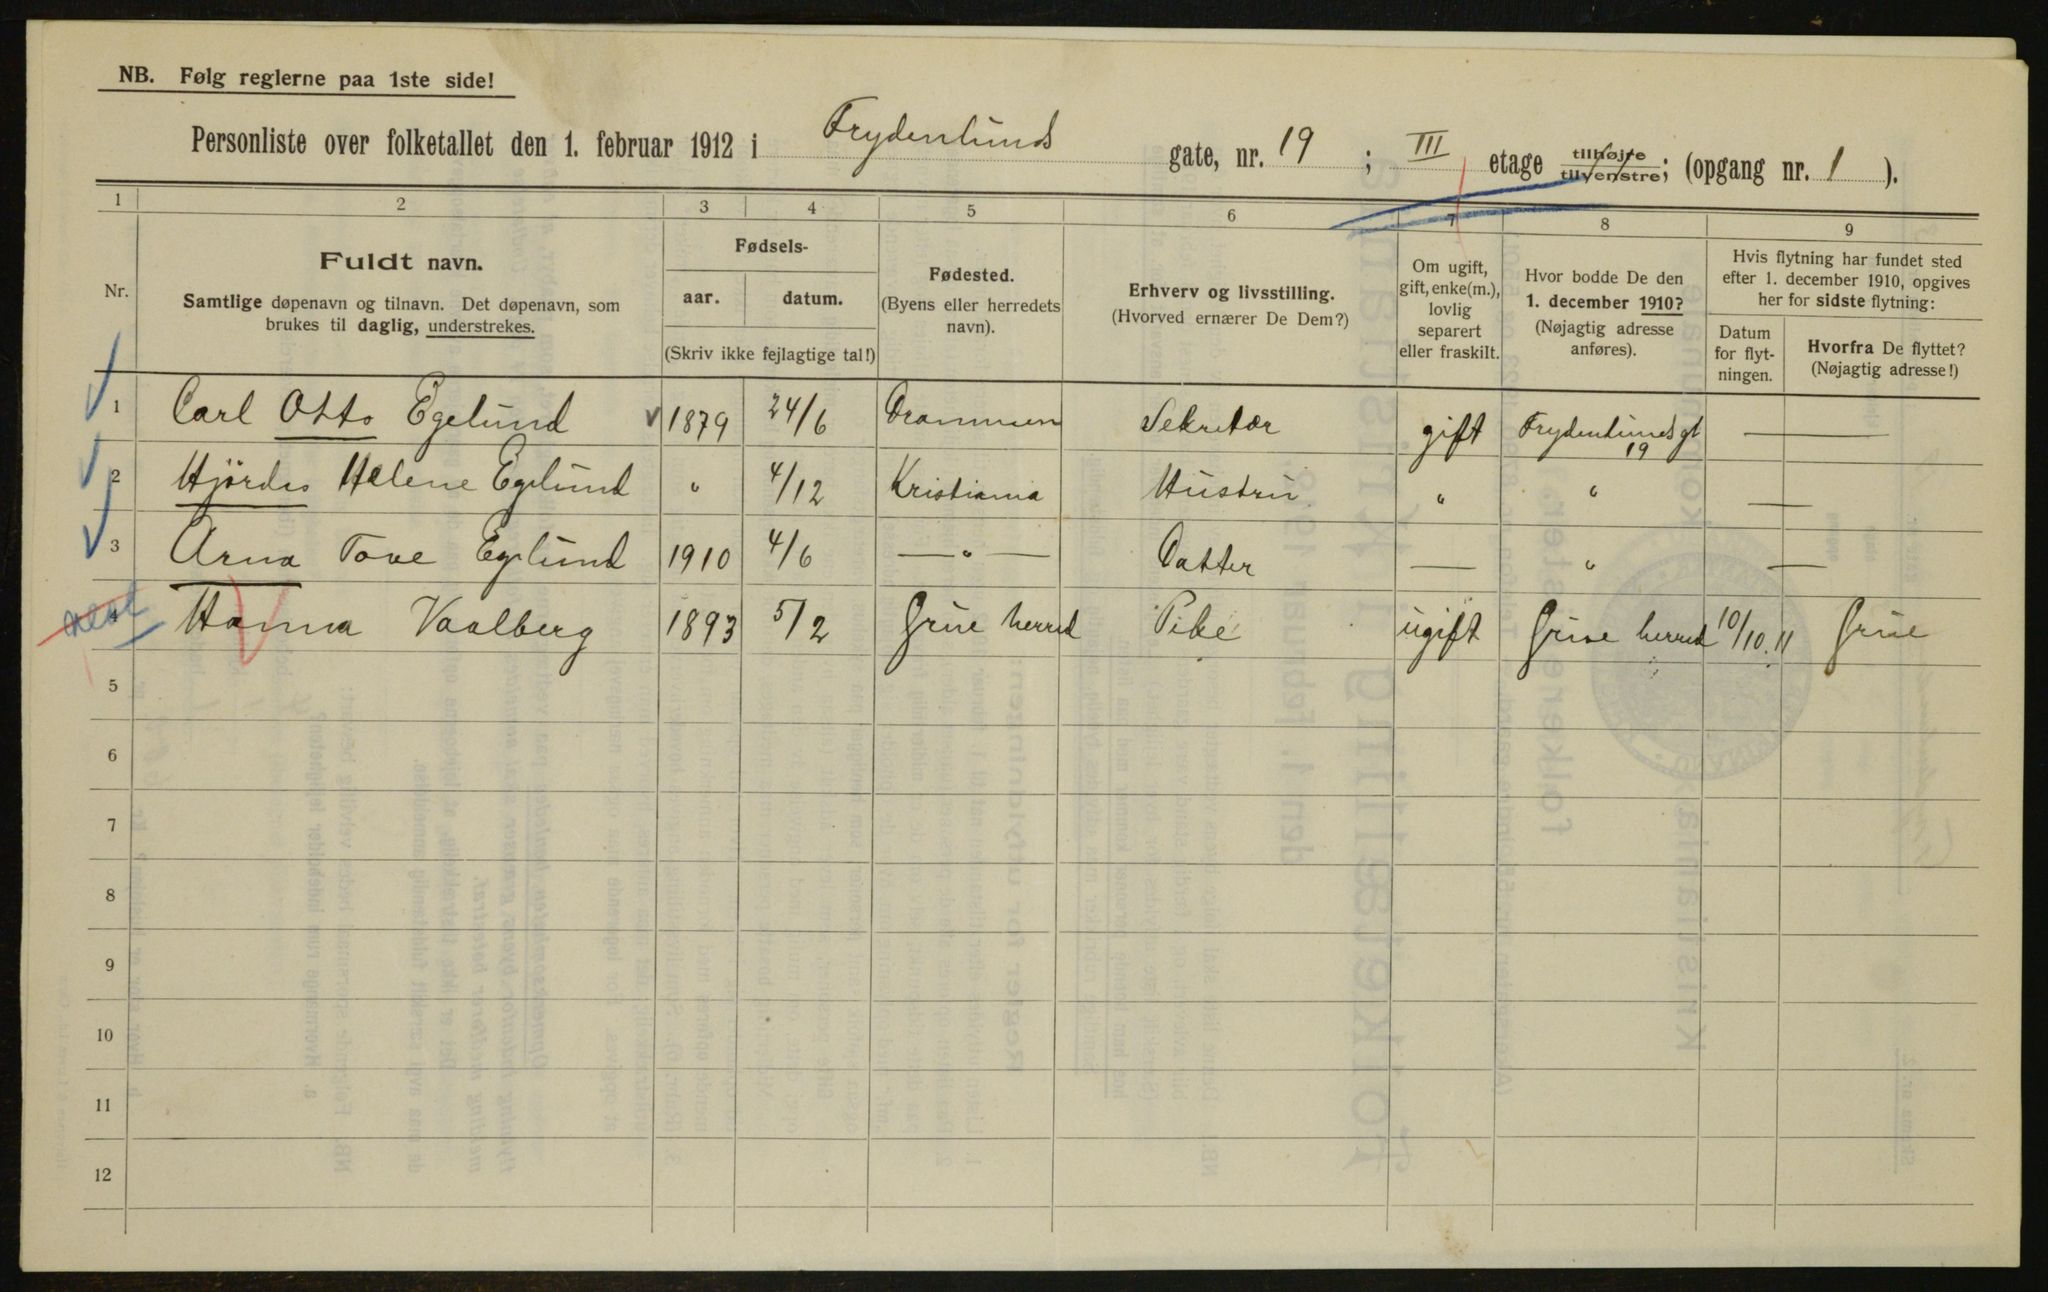 NB. Følg reglerne paa 1ste side!
Personliste over folketallet den 1. februar 1912 i Frydenlunds gate, nr. 19 ; III etage tilhøjre tilvenstre; (opgang nr. 1 ).
1 2 3 4 5 6 7 8 9
Nr.
Fuldt navn.
Samtlige døpenavn og tilnavn. Det døpenavn, som
brukes til daglig, understrekes.
Fødsels-
aar. datum.
(Skriv ikke fejlagtige tal!)
Fødested.
(Byens eller herredets
navn).
Erhverv og livsstilling.
(Hvorved ernærer De Dem?)
Om ugift,
gift, enke(m.),
lovlig
separert
eller fraskilt.
Hvor bodde De den
1. december 1910?
(Nøjagtig adresse
anføres).
Hvis flytning har fundet sted
efter 1. december 1910, opgives
her for sidste flytning:
Datum
for flyt-
ningen.
Hvorfra De flyttet?
(Nøjagtig adresse!)
1 Carl Otto Egelund 1879 24/6 Drammen Sekretær gift Frydenlunds gt 19 —
2 Hjördis Helene Egelund " 4/12 Kristiania Hustru " " —
3 Arna Tove Egelund 1910 4/6 — " — Datter — " —
4 Hanna Vaalberg 1893 5/2 Grue herred Pike ugift Grue herred 10/10.11 Grue
5
6
7
8
9
10
11
12